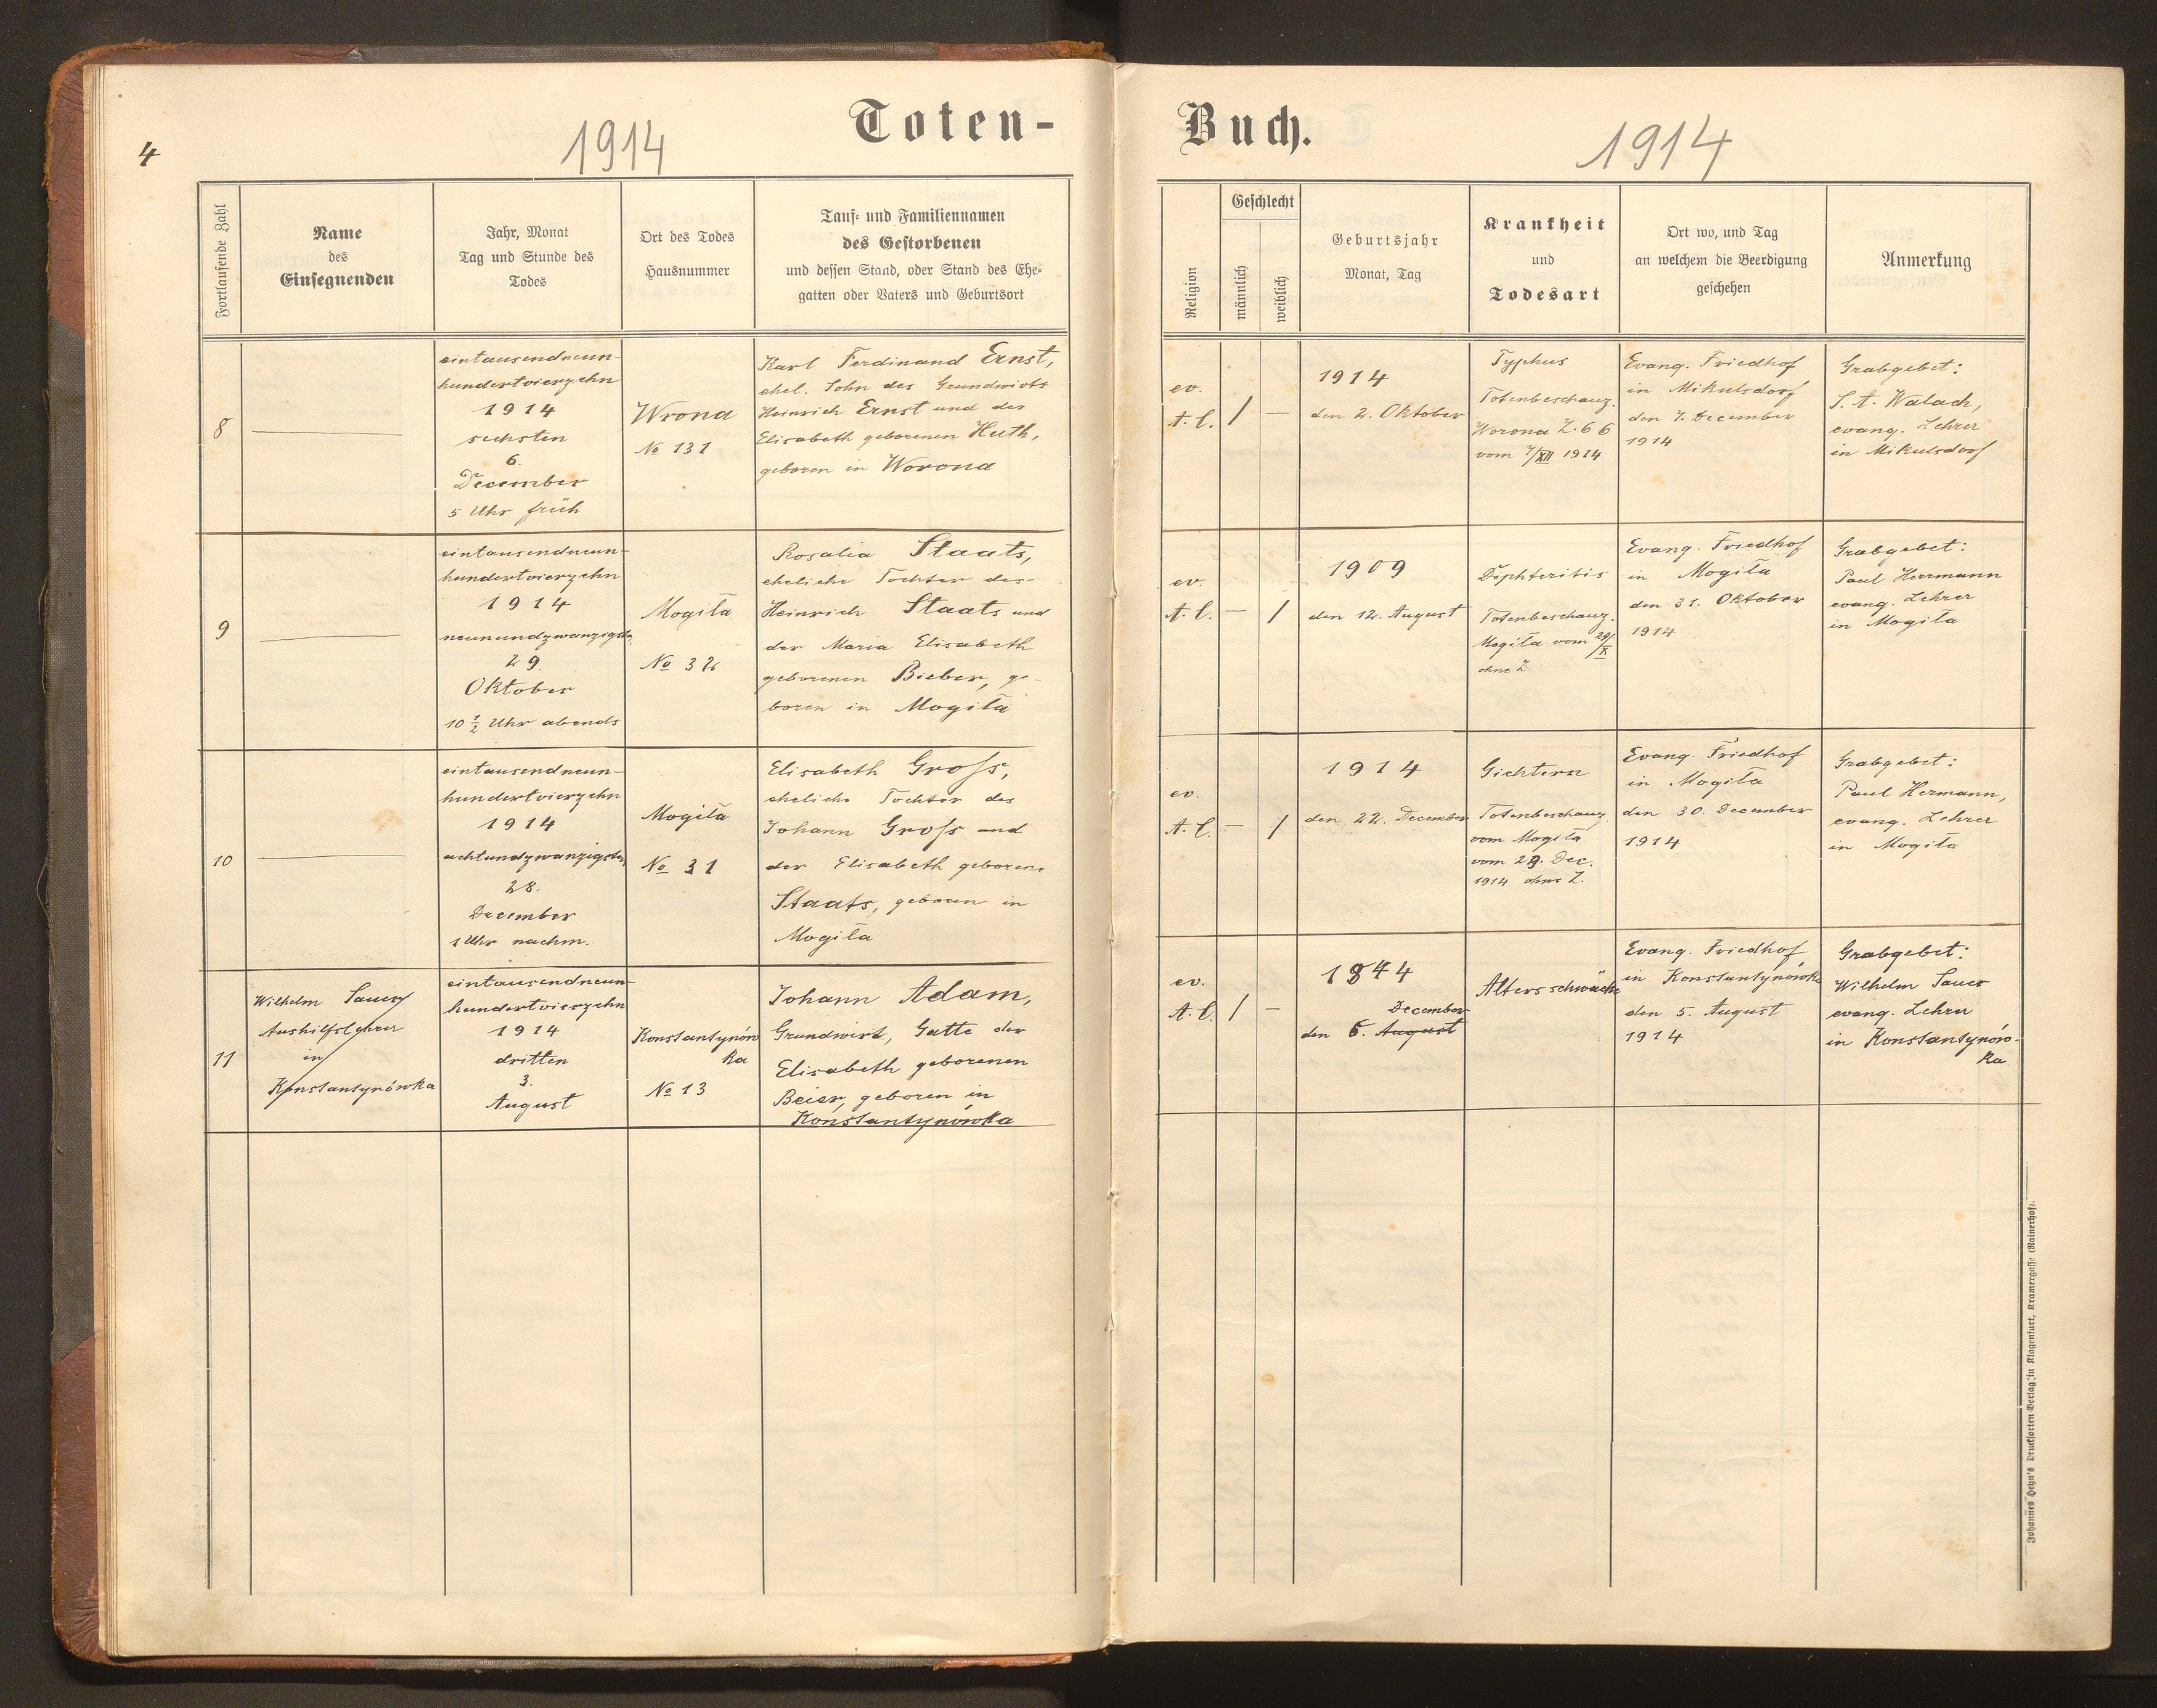 4
1914
Toten-
Fortlaufende Zahl
Name
des
Einsegnenden
Jahr, Monat
Tag und Stunde des
Todes
Ort des Todes
Hausnummer
Tauf- und Familiennamen
des Gestorbenen
und dessen Stand, oder Stand des Ehe-
gatten oder Vaters und Geburtsort
8
eintausendneun-
hundertvierzehn
1914
sechsten
6.
December
5 Uhr früh
Wrona
No 131
Karl Ferdinand Ernst,
ehel. Sohn des Grundwirts
Heinrich Ernst und der
Elisabeth geborenen Huth,
geboren in Worona
9
eintausendneun-
hundertvierzehn
1914
neunundzwanzigsten
29.
Oktober
10 1/2 Uhr abends
Mogiła
No 32
Rosalia Staats,
eheliche Tochter des
Heinrich Staats und
der Maria Elisabeth
geborenen Bieber, ge-
boren in Mogiła
10
eintausendneun-
hundertvierzehn
1914
achtundzwanzigsten
28.
December
1 Uhr nachm.
Mogiła
No 31
Elisabeth Groß,
eheliche Tochter des
Johann Groß und
der Elisabeth geborene
Staats, geboren in
Mogiła
11
Wilhelm Sauer
Aushilfslehrer
in
Konstantynówka
eintausendneun-
hundertvierzehn
1914
dritten
3.
August
Konstantynów
ka
No 13
Johann Adam,
Grundwirt, Gatte der
Elisabeth geborenen
Beier, geboren in
Konstantynówka
Buch.
1914
Religion
Geschlecht
männlich
weiblich
Geburtsjahr
Monat, Tag
Krankheit
und
Todesart
Ort wo, und Tag
an welchem die Beerdigung
geschehen
Anmerkung
ev.
A. C.
/
—
1914
den 2. Oktober
Typhus
Totenbeschauz.
Worona Z. 66
vom 7/XII 1914
Evang. Friedhof
in Mikulsdorf
den 7. December
1914
Grabgebet:
S. A. Walach,
evang. Lehrer
in Mikulsdorf
ev.
A. C.
—
/
1909
den 12. August
Diphteritis
Totenbeschauz.
Mogiła vom 29/X
ohne Z
Evang. Friedhof
in Mogiła
den 31. Oktober
1914
Grabgebet:
Paul Herrmann
evang. Lehrer
in Mogiła
ev.
A. C.
—
/
1914
den 22. December
Gichtern
Totenbeschauz.
vom Mogiła
vom 29. Dec.
1914 ohne Z.
Evang. Friedhof
in Mogiła
den 30. December
1914
Grabgebet:
Paul Hermann,
evang. Lehrer
in Mogiła
ev.
A. C.
/
—
1844
December
den 6. August
Altersschwäche
Evang. Friedhof
in Konstantynówka
den 5. August
1914
Grabgebet:
Wilhelm Sauer
evang. Lehrer
in Konstantynów-
ka
Johannes Heyn's Drucksorten-Verlag in Klagenfurt, Kramergasse (Rainerhof).